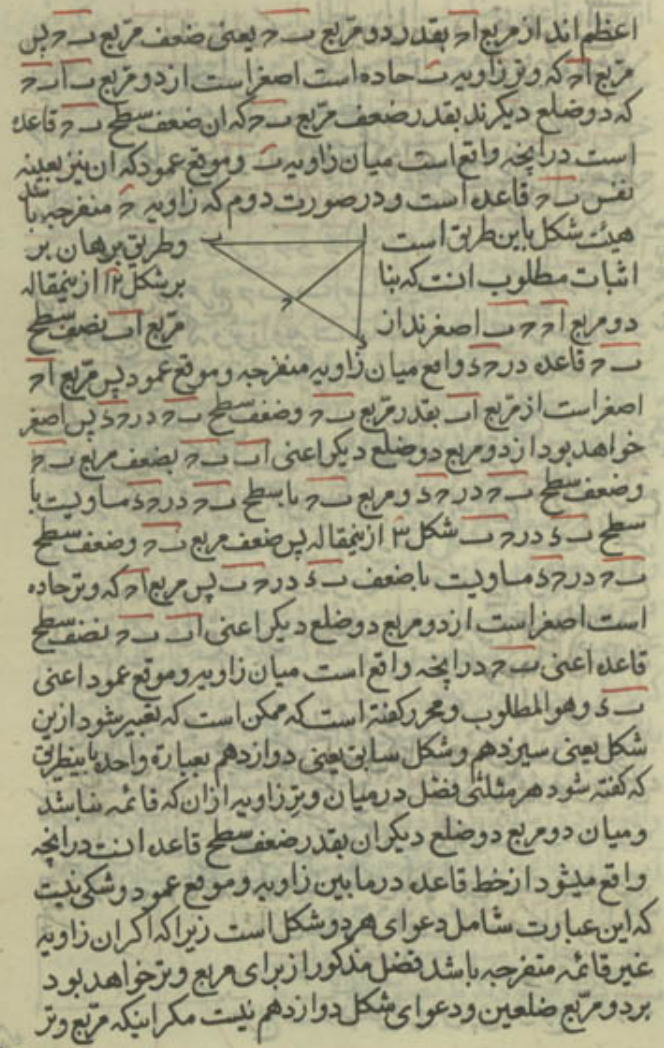 اعظم اند از مربع ا ح بقدر دو مربع ب ح یعنی ضعف مربع ب ح پس
مربع ا ح که وتر زاویه ب حاده است اصغر است از دو مربع ب ا ب ح
که دو ضلع دیگرند بقدر ضعف مربع ب ح که ان ضعف سطح ب ح قاعده
است در انچه واقع است میان زاویه ب و موقع عمود که ان نیز بعینه
نفس ب ح قاعده است و در صورت دوم که زاویه ح منفرجه باشد
هیئت شکل باین طریق است و طریق برهان بر
اثبات مطلوب انست که بنا بر شکل ۱۲ از ینمقاله
دو مربع ا ح ح ب اصغرند از مربع ا ب بضعف سطح
ب ح قاعده در ح د واقع میان زاویه منفرجه و موقع عمود پس مربع ا ح
اصغر است از مربع ا ب بقدر مربع ب ح و ضعف سطح ب ح در ح د پس اصغر
خواهد بود از دو مربع دو ضلع دیگر اعنی ا ب ب ح بضعف مربع ب ح
و ضعف سطح ب ح در ح د و مربع ب ح با سطح ب ح در ح د مساویست با
سطح ب د در ح ب شکل ۳ از ینمقاله پس ضعف مربع ب ح و ضعف سطح
ب ح در ح د مساویست با ضعف ب د در ح ب پس مربع ا ح که وتر حاده
است اصغر است از دو مربع دو ضلع دیگر اعنی ا ب ب ح بضعف سطح
قاعده اعنی ب ح در انچه واقع است میان زاویه و موقع عمود اعنی
ب د و هو المطلوب و محرر گفته است که ممکن است که تعبیر شود ازین
شکل یعنی سیزدهم و شکل سابق یعنی دوازدهم بعبارة واحده باینطریق
که گفته شود هر مثلثی فضل در میان وتر زاویه از ان که قائمه نباشد
و میان دو مربع دو ضلع دیگر ان بقدر ضعف سطح قاعده است در انچه
واقع میشود از خط قاعده در ما بین زاویه و موقع عمود و شکی نیست
که این عبارت شامل دعوای هر دو شکل است زیرا که اکر ان زاویه
غیر قائمه منفرجه باشد فضل مذکور از برای مربع وتر خواهد بود
بر دو مربع ضلعین و دعوای شکل دوازدهم نیست مکر اینکه مربع وتر